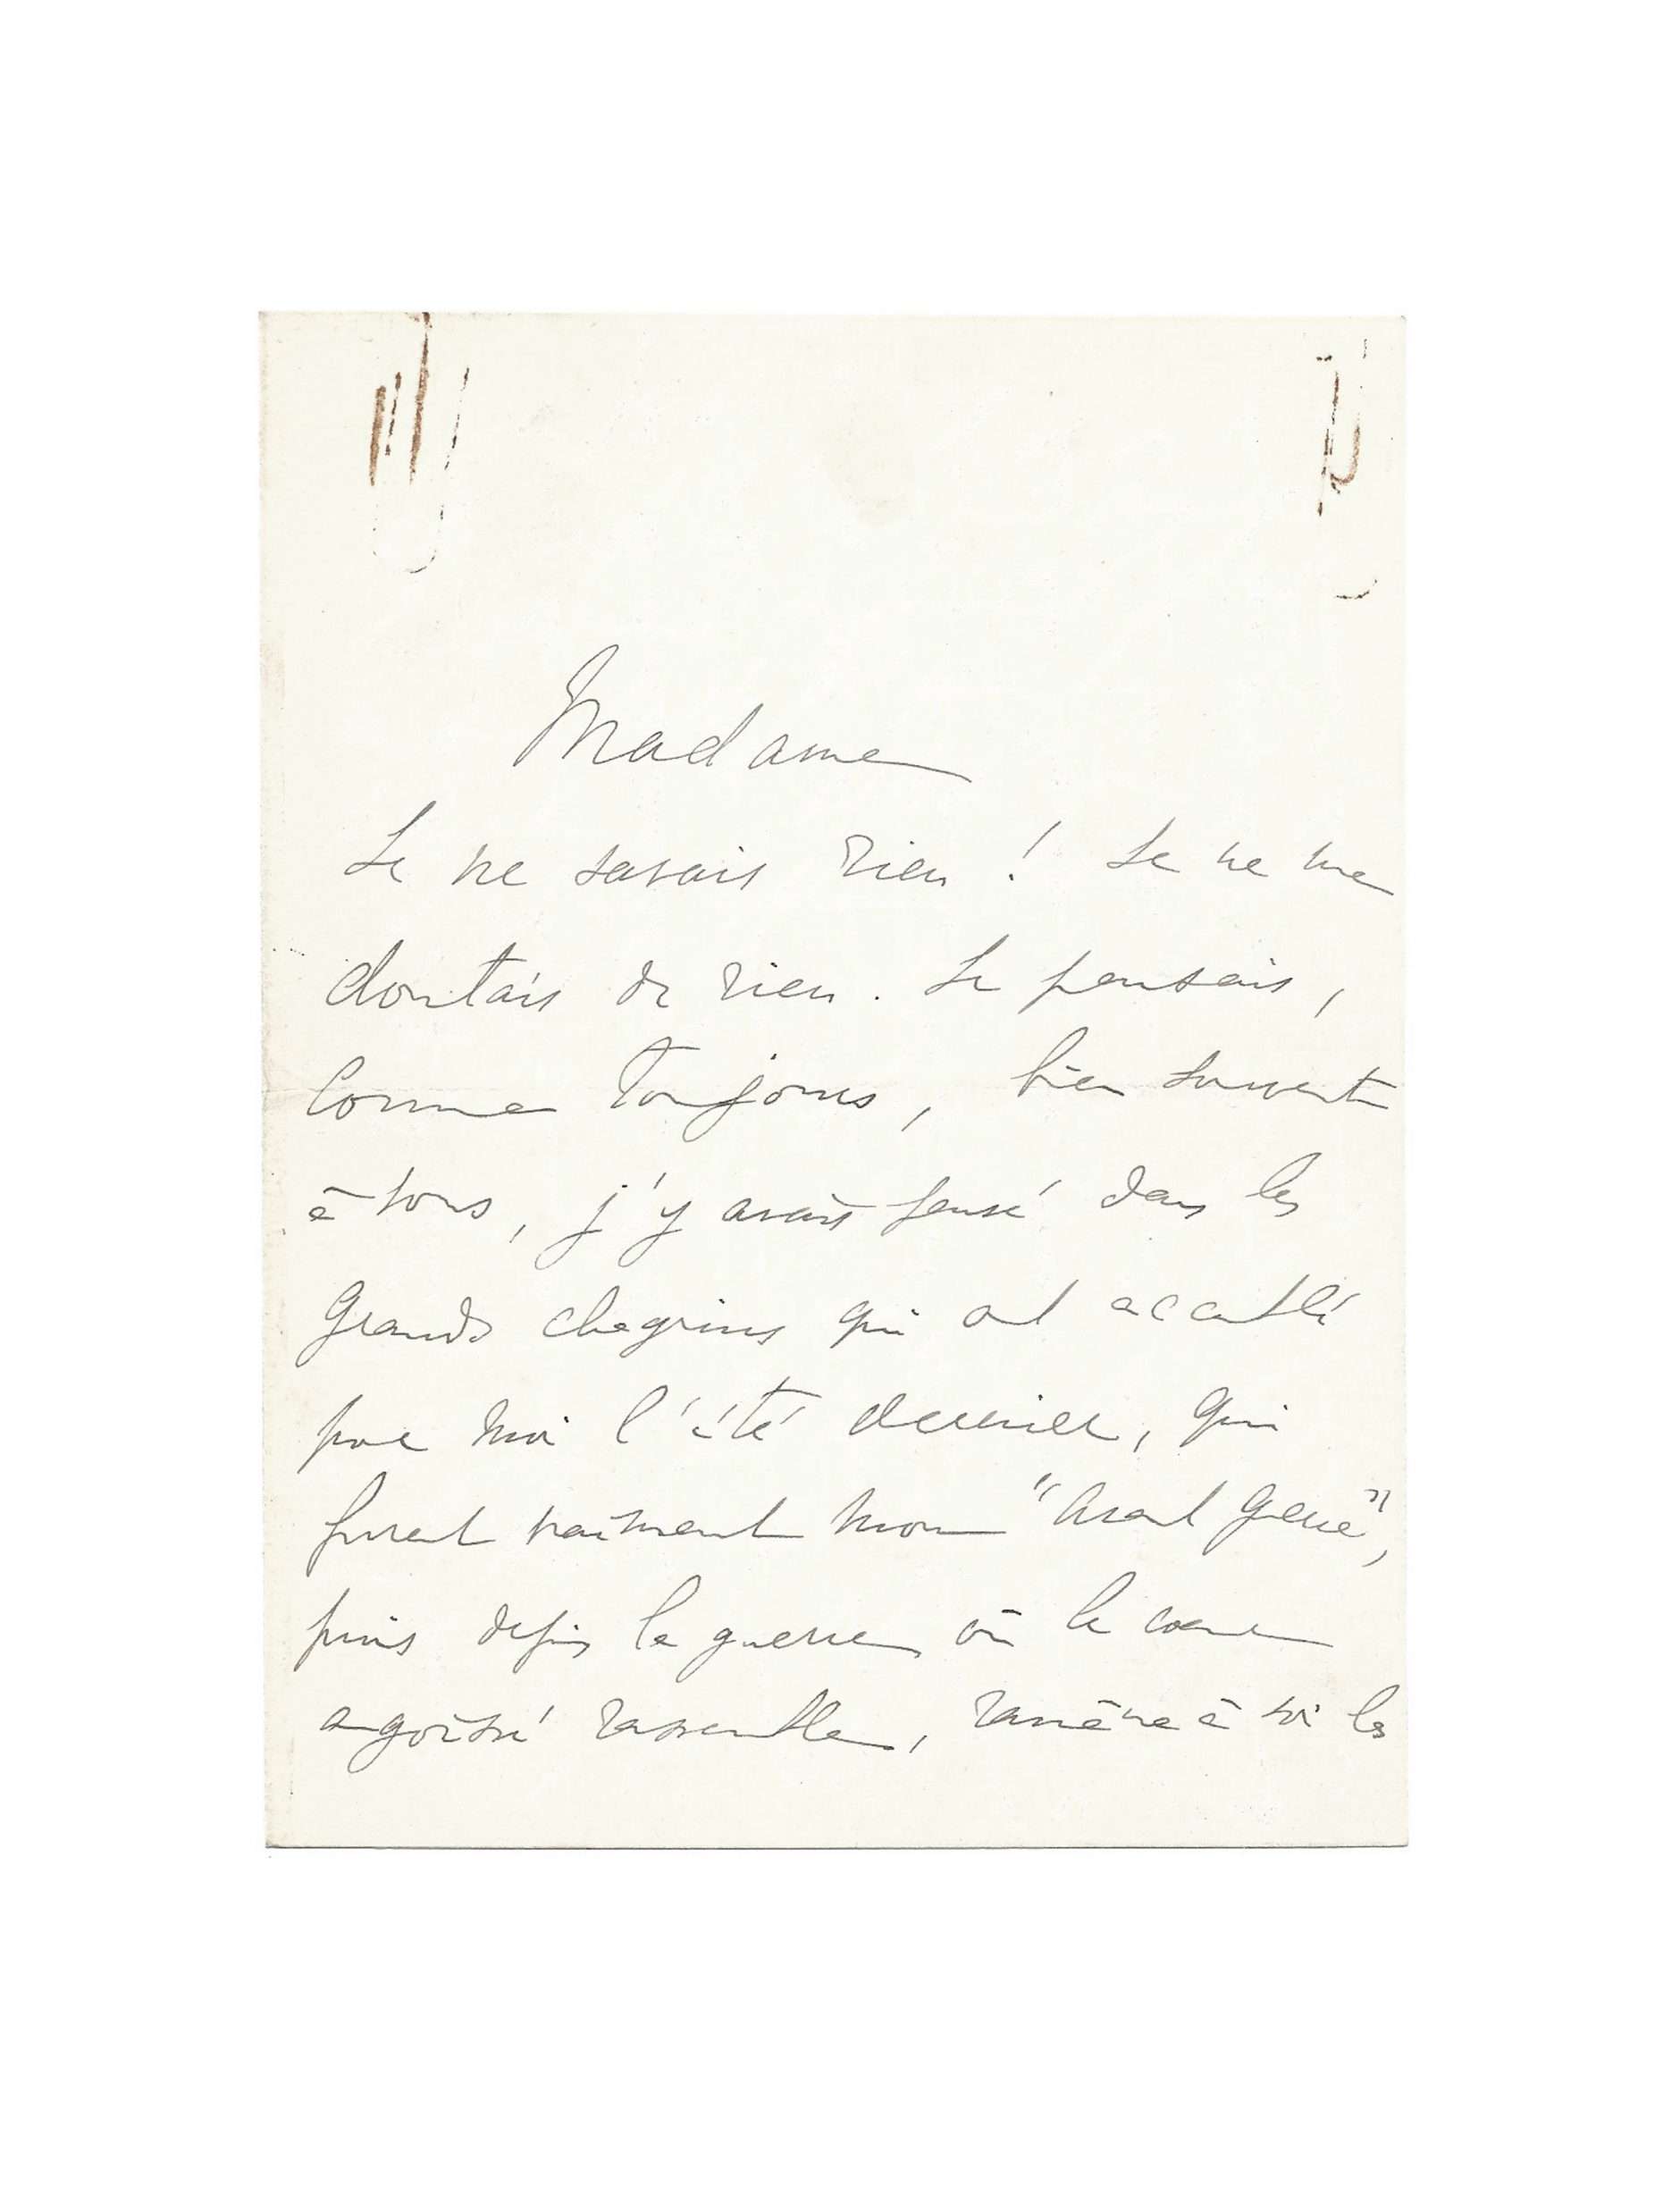 Madame
Je ne savais rien ! Je ne me
doutais de rien. Je pensais,
Comme toujours, bien souvent
à vous, j'y avais pensé dans les
Grands chagrins qui ont accablé
pour moi l'été dernier, qui
furent vraiment mon "Avant guerre",
puis depuis la guerre où le coeur
angoissé rassemble, ramène à soi les